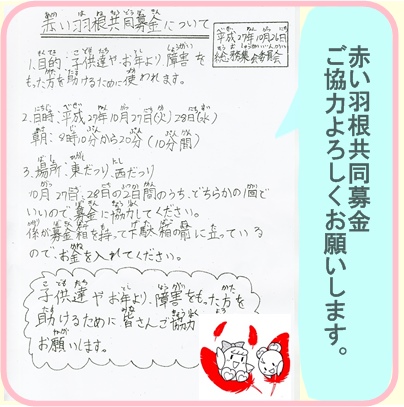 赤い羽根共同募金について
平成27年10月26日
総務集会委員会
1.目的:子供達やお年より、障害を
もった方を助けるために使われます。
2.日時:平成27年10月27日(火)28日(水)
朝:8時10分から20分(10分間)
3.場所:東だつり、西だつり
10月27日、28日の2日間のうち、どちらかの1回で
いいので、募金に協力してください。
係が募金箱を持って下駄箱の前に立っている
ので、お金を入れてください。
子供達やお年より、障害をもった方を
助けるために皆さんご協力
お願いします。
赤い羽根共同募金
ご協力よろしくお願いします。